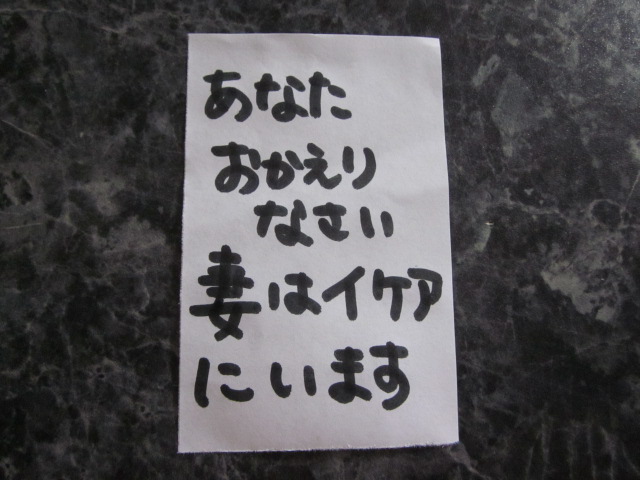 あなた
おかえり
なさい
妻はイケア
にいます